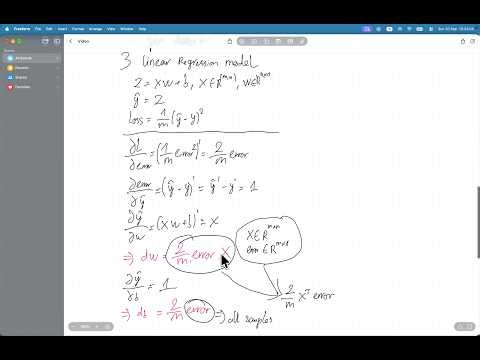 Freeform File Edit Insert Format Arrange View Window Help
video
All Boards
Recents
Shared
Favorites
3 linear Regression model
Z = XW + b, X ∈ R^(m×n), W ∈ R^(n×1)
ŷ = Z
Loss = 1/m (ŷ - y)²
∂L/∂error = (1/m error²)' = 2/m error
∂error/∂ŷ = (ŷ - y)' = ŷ' - y' = 1
∂ŷ/∂w = (XW + b)' = X
X ∈ R^(m×n)
error ∈ R^(m×1)
⇒ dw = 2/m error X
2/m Xᵀ error
∂ŷ/∂b = 1
⇒ db = 2/m error ⇒ all samples